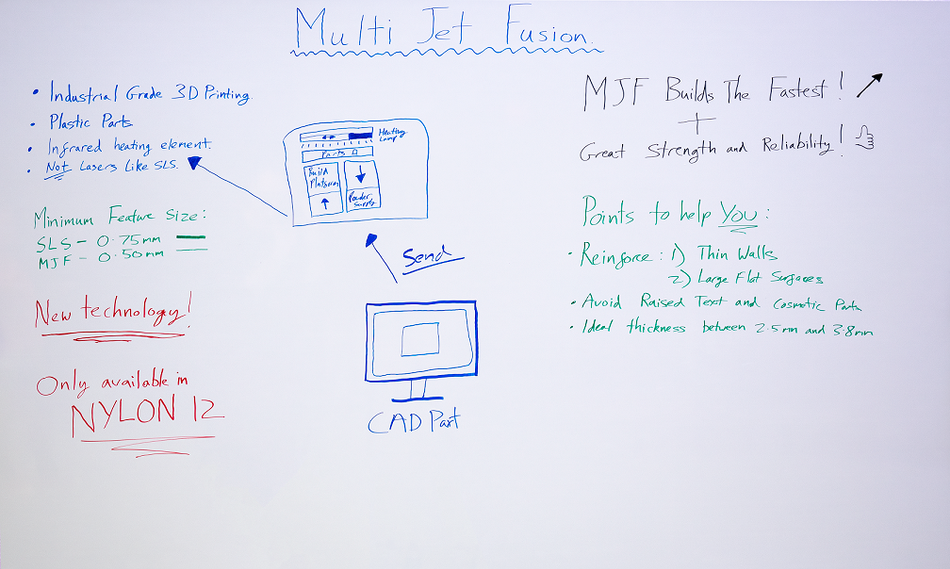 Multi Jet Fusion.
• Industrial Grade 3D Printing
• Plastic Parts
• Infrared heating element.
• Not Lasers Like SLS.
Minimum Feature Size:
SLS - 0.75mm
MJF - 0.50mm
New technology!
Only available in
NYLON 12
Heating
Lamp
Parts
Build
Platform
Powder
Supply
Send
CAD Part
MJF Builds The Fastest!
+
Great Strength and Reliability!
Points to help You:
• Reinforce: 1) Thin Walls
2) Large Flat Surfaces
• Avoid Raised Text and Cosmetic Parts
• Ideal thickness between 2.5mm and 3.8mm